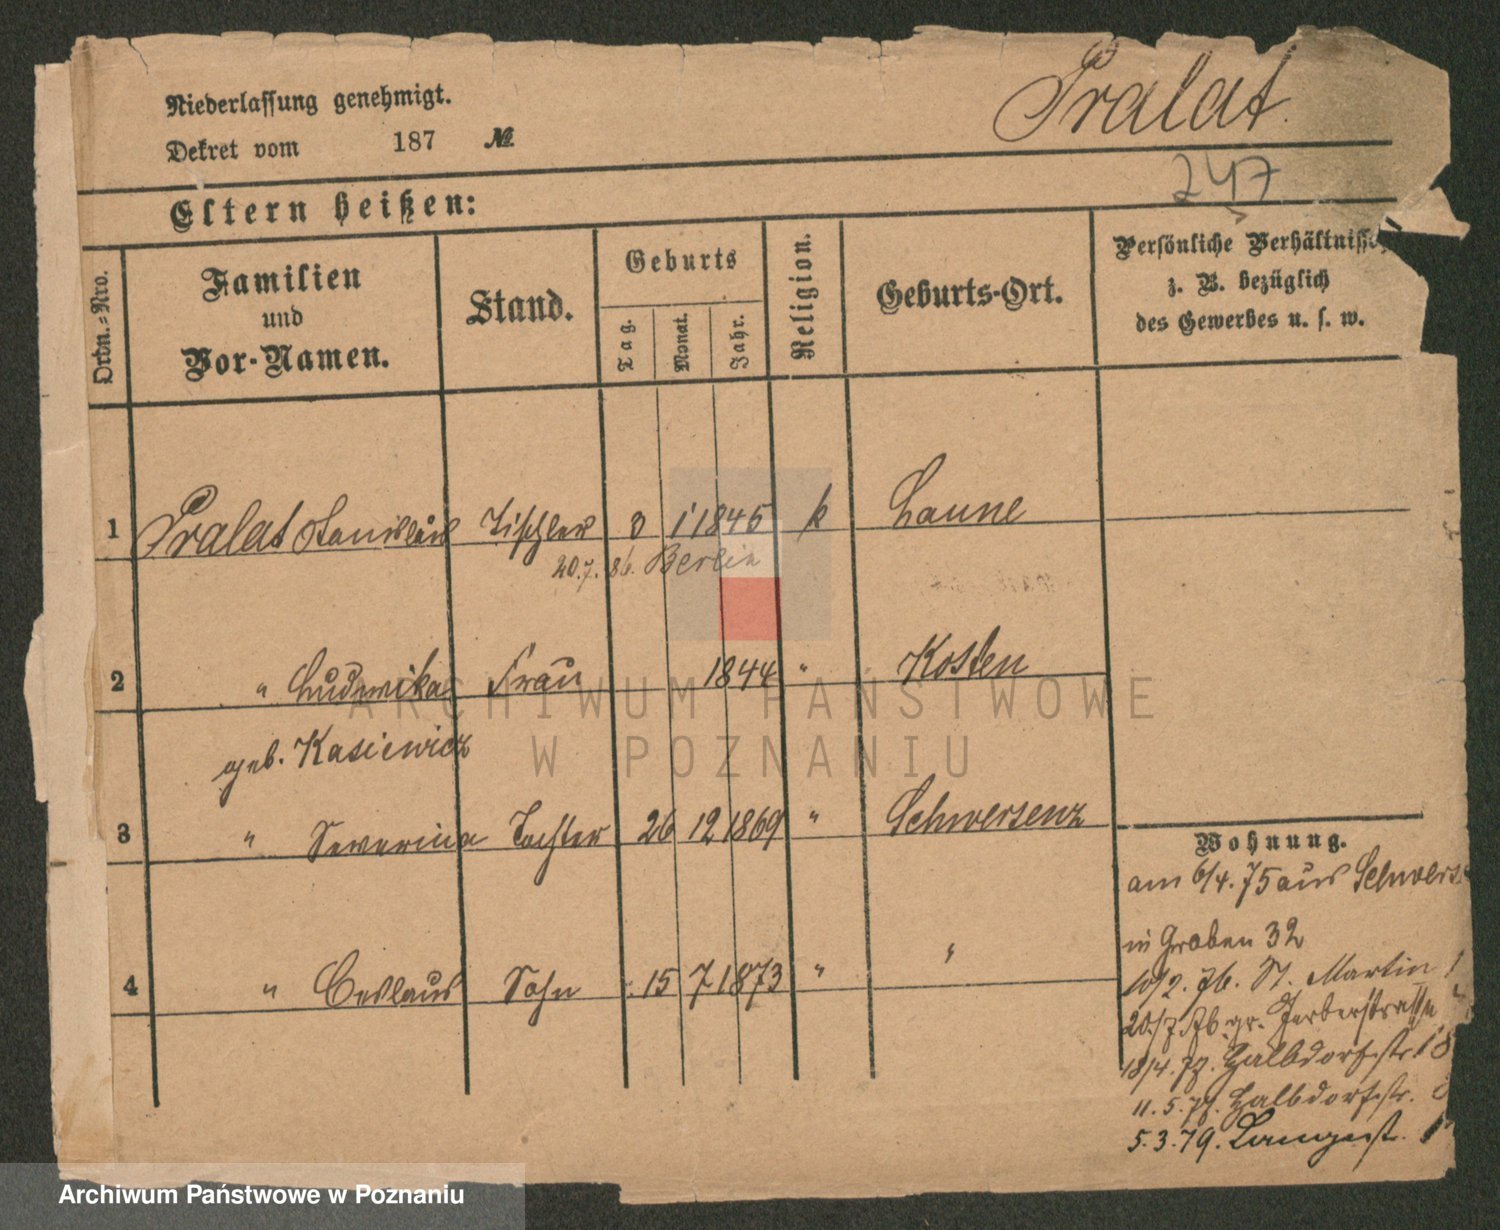 Niederlassung genehmigt.
Dekret vom 187 №
Pralat.
247
Eltern heißen:
Ordn.-Nro.
Familien
und
Vor-Namen.
Stand.
Geburts
Tag.
Monat.
Jahr.
Religion.
Geburts-Ort.
Persönliche Verhältnisse
z. B. bezüglich
des Gewerbes u. s. w.
1 Pralat Stanislaus Tischler 3 1 1845 k Laune
20.7.86. Berlin
2 " Ludwika Frau 1844 " Kosten
geb. Kasiewicz
3 " Severina Tochter 26 12 1869 " Schwersenz
4 " Ceslaus Sohn 15 7 1873 " "
Wohnung.
am 6/4. 75 aus Schwers
in Graben 32
10/2. 76. St. Martin
20/7 76 gr. Gerberstrasse
18/4. 77. Halbdorfstr. 18
11. 5. 77. Halbdorfstr.
5. 3. 79. Langestr.
ARCHIWUM PAŃSTWOWE
W POZNANIU
Archiwum Państwowe w Poznaniu